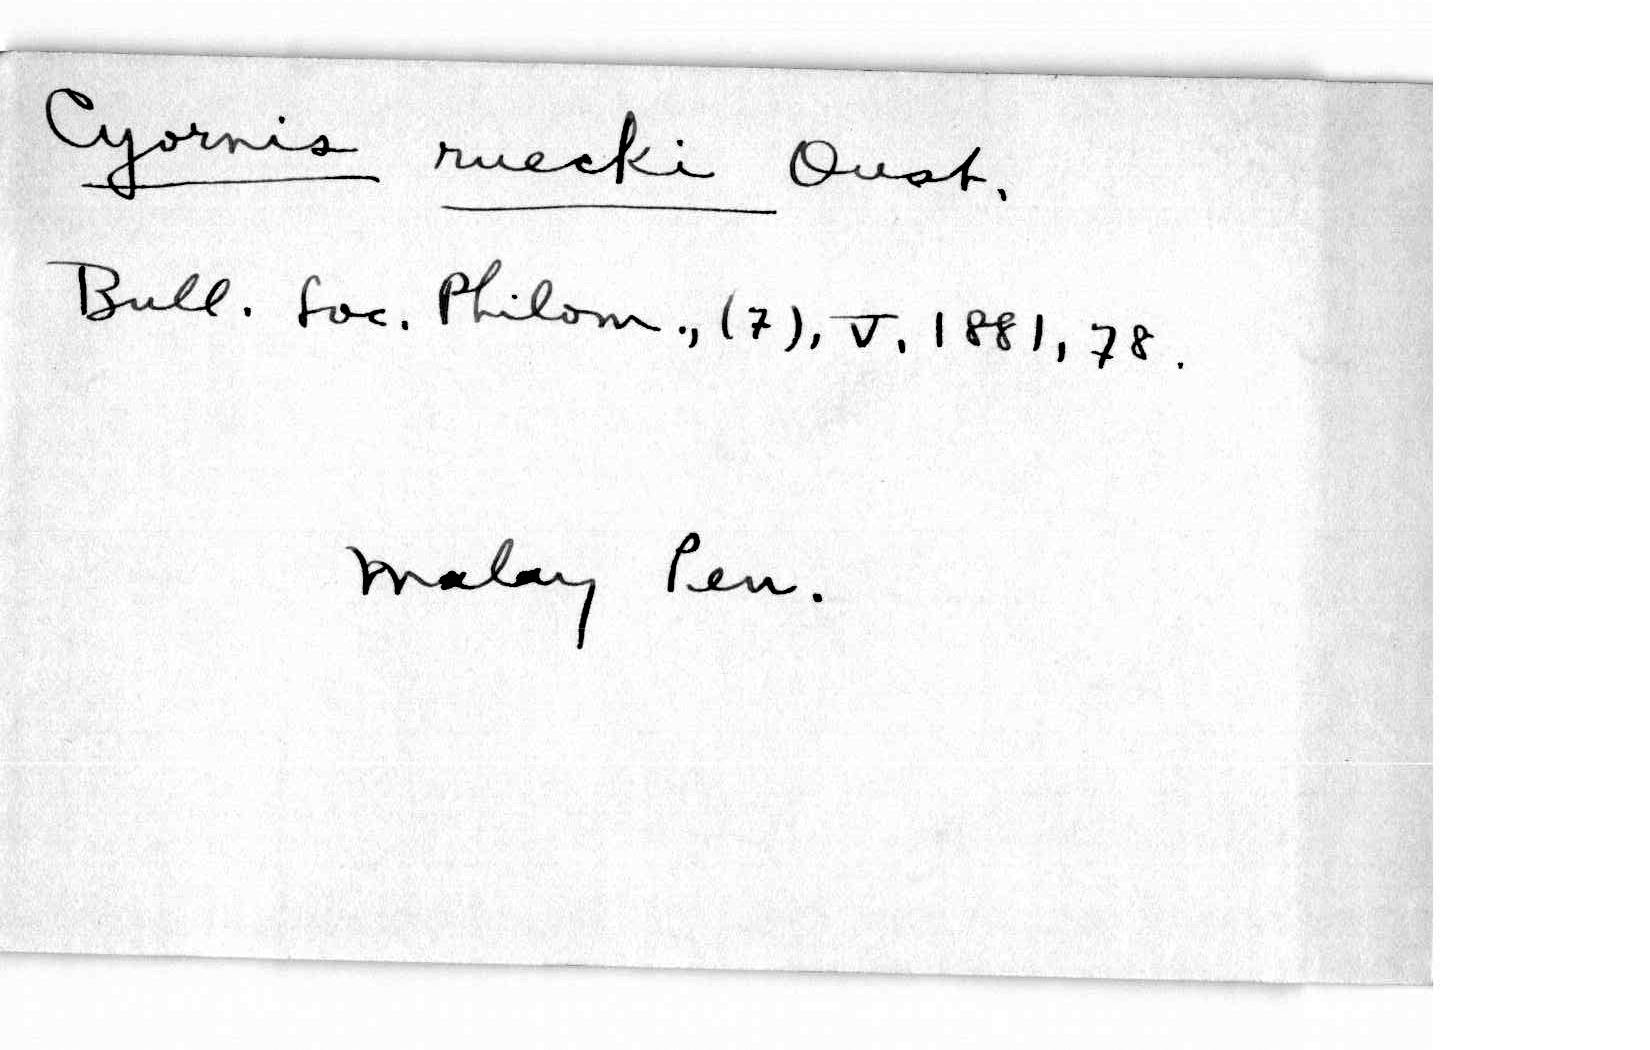 Cyornis ruecki Oust.
Bull. Soc. Philom., (7), V, 1881, 78.
Malay Pen.